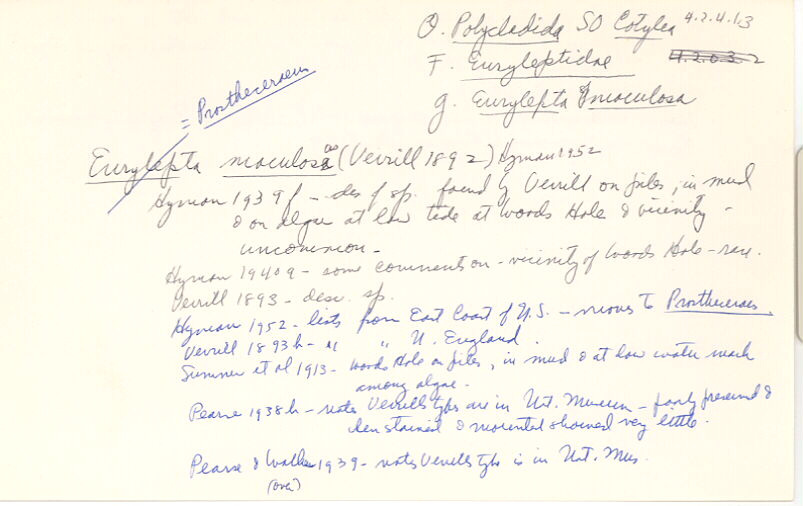 O. Polycladida SO Cotylea 4.2.4.1.3
F. Euryleptidae 4.2.0.3.2
g. Eurylepta maculosa
= Prostheceraeus
Eurylepta maculosa (Verrill 1892) Hyman 1952
Hyman 1939f - des of sp. found by Verrill on piles, in mud
& on algae at low tide at Woods Hole & vicinity -
uncommon -
Hyman 1940g - some comments on - vicinity of Woods Hole - rare.
Verrill 1893 - desc. sp.
Hyman 1952 - lists from East Coast of U.S. - moves to Prostheceraeus
Verrill 1893b - " " N. England.
Sumner et al 1913 - Woods Hole on piles, in mud & at low water mark
among algae.
Pearse 1938b - notes Verrills types are in Nat. Museum - poorly preserved &
when stained & mounted showed very little.
Pearse & Walker 1939 - notes Verrills type is in Nat. Mus.
(over)